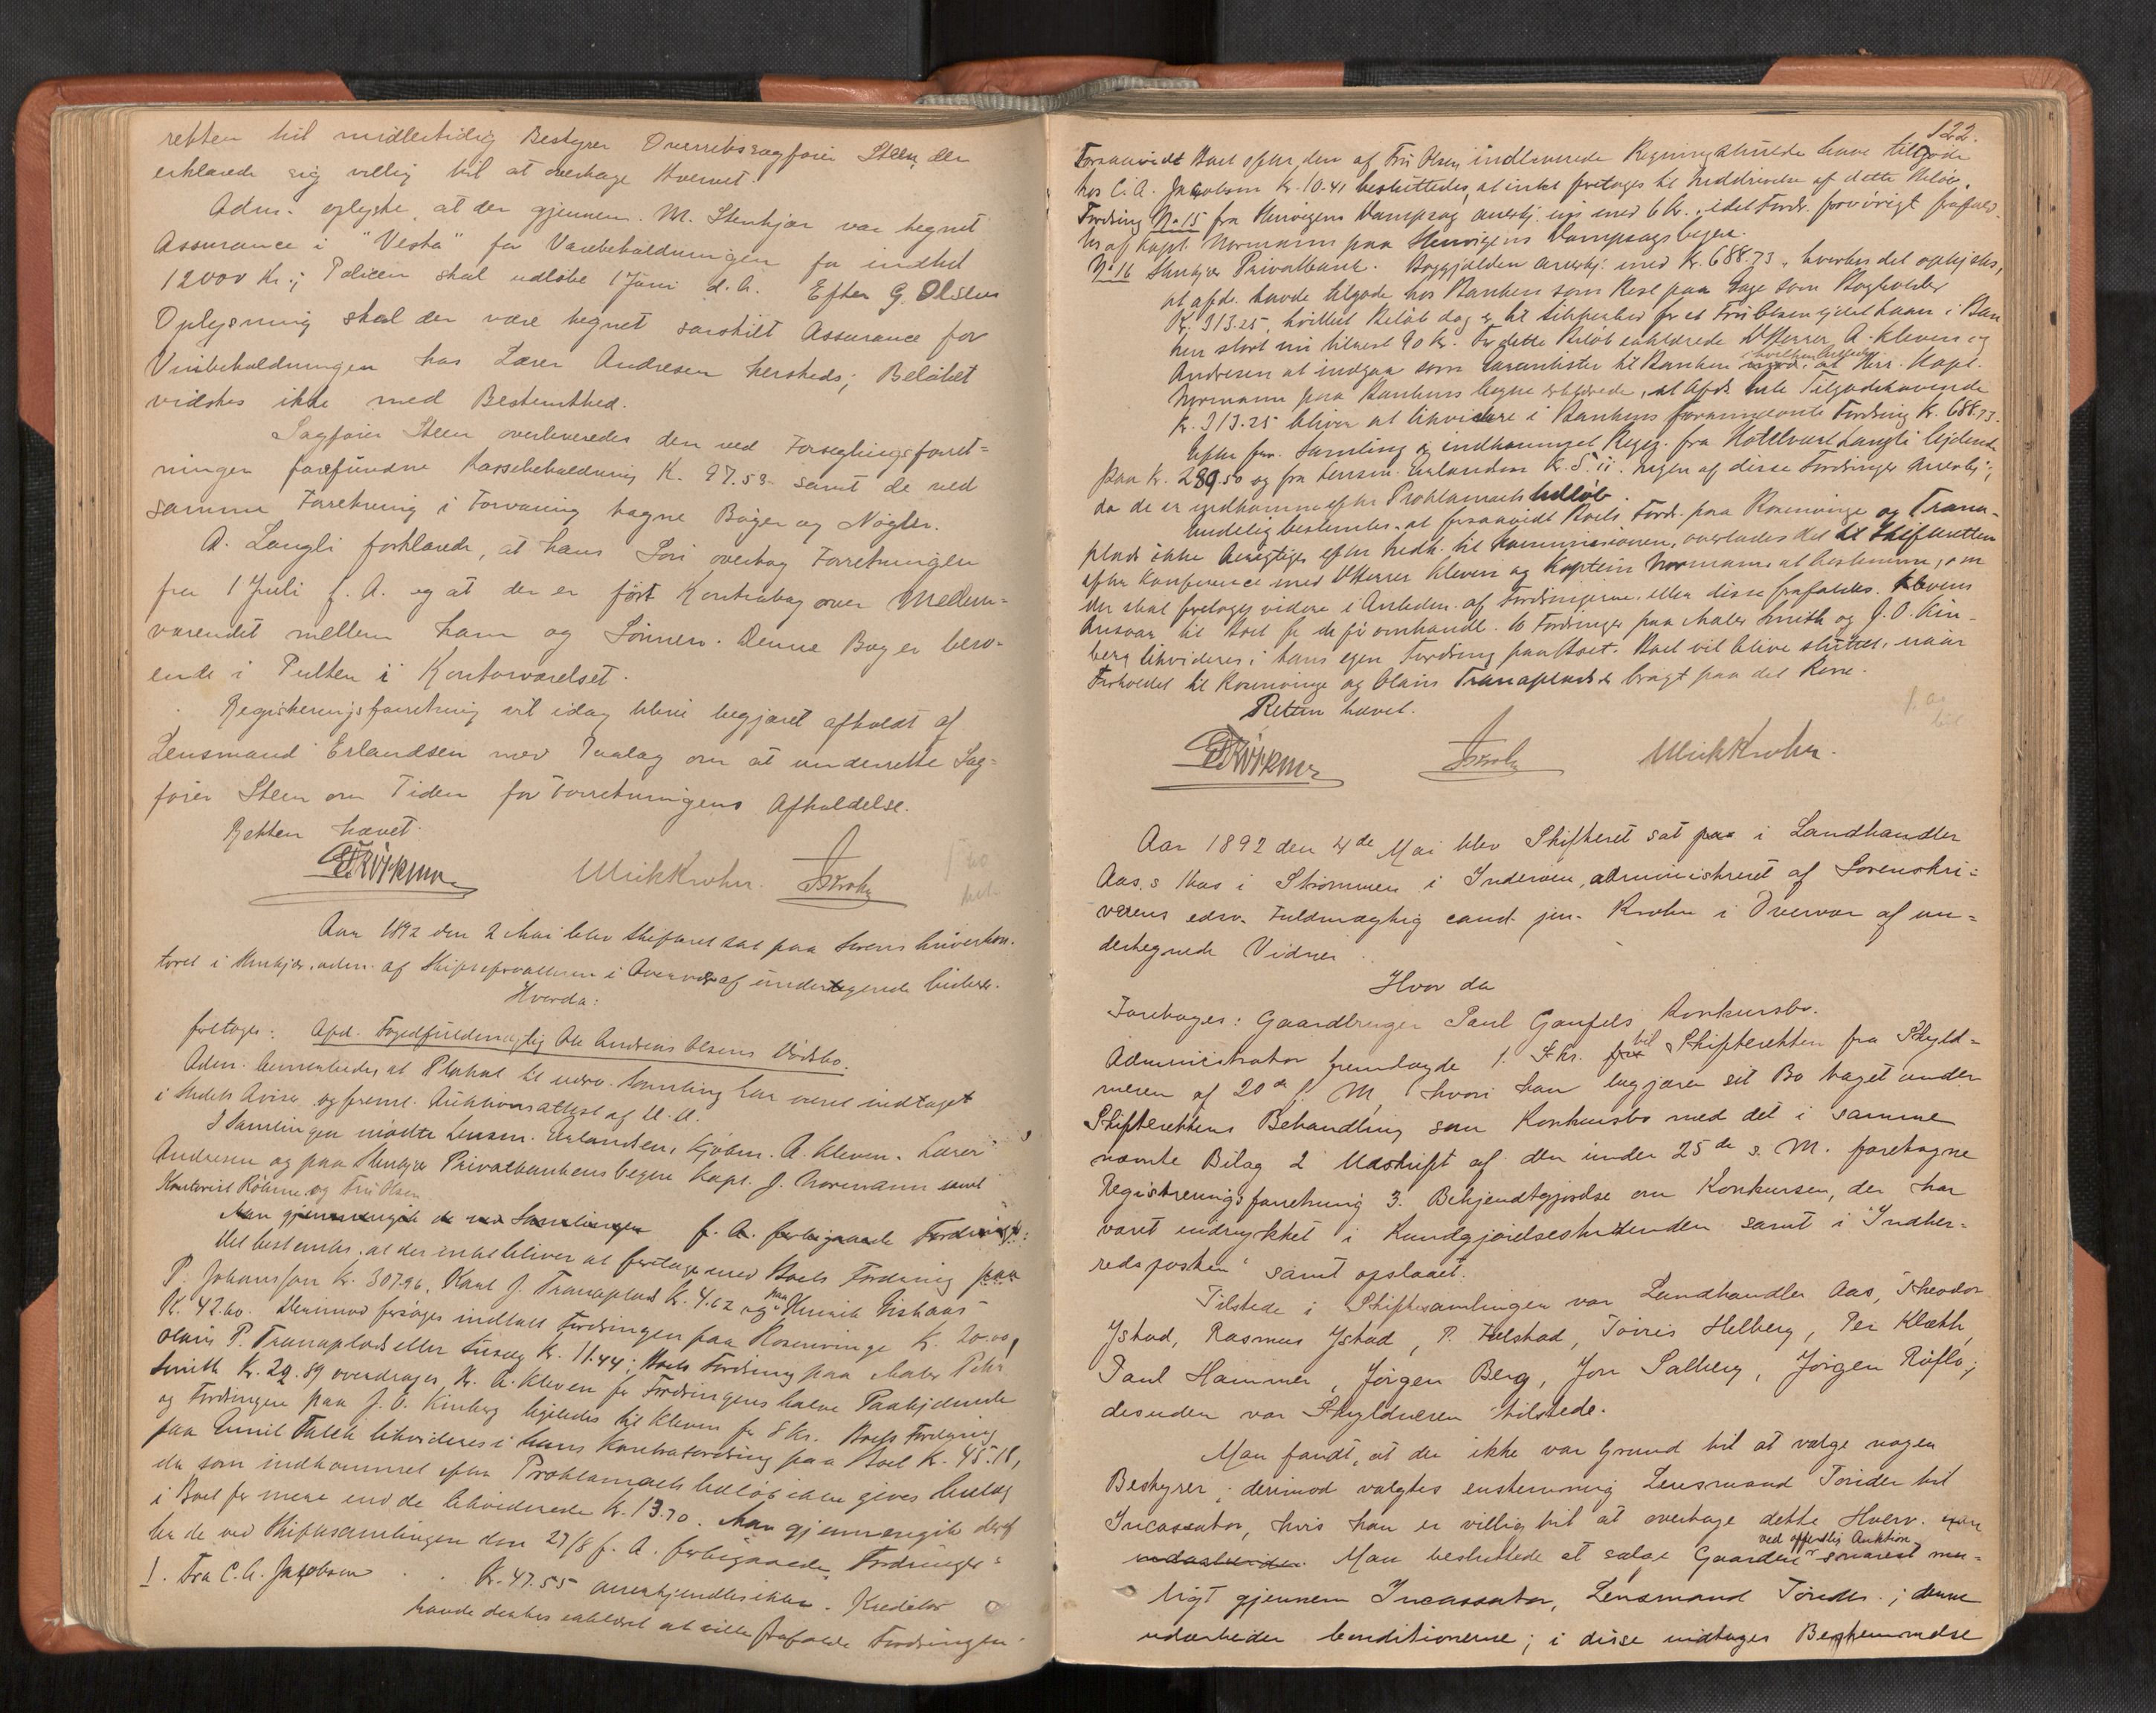 retten til midlertidig Bestyrer Overretssagfører Steen, der
erklærede sig villig til at overtage Hvervet.
Adm. oplyste, at der gjennem M. Stenkjær var tegnet
Assurance i "Vesta" for Varebeholdningen for indtil
12000 Kr.; Policen skal udløbe 1 Juni d. A. Efter G. Olsens
Oplysning skal der være tegnet særskilt Assurance for
Vinbeholdningen hos Lærer Andresen hersteds; Beløbet
vidstes ikke med Bestemthed.
Sagfører Steen overleveredes den ved Forseglingsforret-
ningen forefundne Kassebeholdning K. 97.53 samt de ved
samme Forretning i Forvaring tagne Bøger og Nøgler.
A. Langli forklarede, at hans Søn overtog Forretningen
fra 1 Juli f. A. og at der er ført Kontrabog over Mellem-
værendet mellem ham og Sønnen. Denne Bog er bero-
ende i Pulten i Kontorværelset.
Registreringsforretning vil idag blive begjæret afholdt af
Lensmand Erlandsen med Paalæg om at underrette Sag-
fører Steen om Tiden for Forretningens Afholdelse.
Retten hævet.
Ulrik Krohn.
Aar 1892 den 2 Mai blev Skifteret sat paa Sorenskriverkon-
toret i Stenkjær, adm. af Skifteforvalteren i Overvær af undertegnede Vidner.
Hvorda:
foretoges: Afd. Fogedfuldmægtig Ole Andreas Olsens Dødsbo.
Adm. bemærkedes, at Plakat til nærv. Samling har været indtaget
i Stedets Aviser og freml. Auktionsattest af U. U.
I Samlingen mødte Lensm. Erlandsen, Kjøbm. A. Kleven, Lærer
Andresen og paa Stenkjær Privatbankens Vegne Kapt. J. Normann samt
Kontorist Røhme og Fru Olsen.
Man gjennemgik de ved Samlingen f. A. forbigaaede Fordringer:
Det bestemtes, at der intet bliver at foretage med Boets Fordring paa
P. Johanssen Kr. 307.96, Karl J. Tranaplads Kr. 4.62 og paa Henrik
K. 42.60. Derimod forsøges inddrevet Fordringen paa Rosenvinge K. 20.00,
Olaus P. Tranaplads eller Kr. 11.44; Boets Fordring paa Maler Peter
Smith Kr. 29.89 overdrages Kr. A. Kleven for Fordringens halve Paalydende
og Fordringen paa J. O. Kinberg ligeledes til Kleven for 8 Kr. Boets Fordring
paa Emil Falch likvideres i hans Kontrafordring paa Boet K. 45.18,
der som indkommet efter Proklamaets Udløb ikke gives Udlæg
i Boet for mere end de likviderede Kr. 13.70. Man gjennemgik derefter
de ved Skiftesamlingen den 27/8 f. A. forbigaaede Fordringer:
1. Fra C. A. Jacobsen . . Kr. 47.55 anerkjendtes ikke. Kreditor
havde desuden erklæret at ville frafalde Fordringen.
122.
Forsaavidt Boet efter den af Fru Olsen indleverede Regning skulde have tilgode
hos C. A. Jacobsen Kr. 10.41 besluttedes, at intet foretages til Inddrivelse af dette Beløb.
Fordring No. 15 fra Stenvigens Dampsag anerkj. kun med 6 Kr., idet Fordr. forøvrigt frafald-
tes af Kapt. Normann paa Stenvigens Dampsags Vegne.
No 16 Stenkjær Privatbank. Vexelgjælden anerkj. med Kr. 688.73, hvorhos det oplystes,
at afd. havde tilgode hos Banken som Rest paa Gage som Bogholder
Kr. 313.25, hvilket Beløb dog er til Sikkerhed for et Fru Olsen ydet Laan i Ban-
ken stort nu tilrest 90 Kr. For dette Beløb erklærede D'Herrer A. Kleven og
Andresen at indgaa som Garantister til Banken, i hvilken Anledning Herr. Kapt.
Normann paa Bankens Vegne erklærede, at Afdr. hele Tilgodehavende
Kr. 313.25 bliver at likvidere i Bankens foranmeldte Fordring Kr. 688.73.
Efter forr. Samling er indkommet Regng. fra Hotelvært Langli lydende
paa Kr. 289.50 og fra Lensm. Erlandsen Kr. 5.11. Ingen af disse Fordringer anerkj.,
da de er indkomne efter Proklamaets Udløb.
Endelig bestemtes, at forsaavidt Boets Fordr. paa Rosenvinge og Trana-
plads ikke berigtiges efter Indk. til Kommissionen, overlades det til Skifteretten
efter Konference med D'Herrer Kleven og Kaptein Normann at bestemme, om
der skal foretages videre i Anledn. af Fordringerne, eller disse frafaldes. Klevens
Ansvar til Boet for de før omhandl. to Fordringer paa Maler Smith og J. O. Kin-
berg likvideres i hans egen Fordring paa Boet. Boet vil blive sluttet, naar
Forholdet til Rosenvinge og Olaus Tranaplads er bragt paa det Rene.
Retten hævet.
Ulrik Krohn.
Aar 1892 den 4de Mai blev Skifteret sat paa i Landhandler
Aas.s Hus i Strømmen i Inderøen, administreret af Sorenskri-
verens edsv. Fuldmægtig cand. jur. Krohn i Overvær af un-
dertegnede Vidner.
Hvor da
Foretoges: Gaardbruger Paul Gaufels Konkursbo.
Administrator fremlagde 1. Skr. fra til Skifteretten fra Skyld-
neren af 20de f. M, hvori han begjærer sit Bo taget under
Skifterettens Behandling som Konkursbo med det i samme
nævnte Bilag 2 Udskrift af den under 25de s. M. foretagne
Registreringsforretning 3. Bekjendtgjørelse om Konkursen, der har
været indrykket i Kundgjørelsestidenden samt i "Indher-
redsposten" samt opslaaet.
Tilstede i Skiftesamlingen var Landhandler Aas, Theodor
Ystad, Rasmus Ystad, P. Hulstad, Tørris Helberg, Per Klæth,
Paul Hammer, Jørgen Berg, Jon Salberg, Jørgen Røflo;
desuden var Skyldneren tilstede.
Man fandt, at der ikke var Grund til at vælge nogen
Bestyrer; derimod valgtes enstemmig Lensmand Tønder til
Incassator, hvis han er villig til at overtage dette Hverv.
Man besluttede at sælge Gaarden ved offentlig Auktion snarest mu-
ligt gjennem Incassator, Lensmand Tønder; denne
udarbeider Conditionerne; i disse indtages Bestemmelse